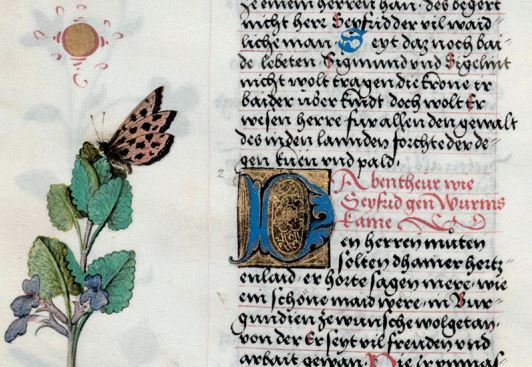 ze einem herren han . des begert
nicht herr Seyfrid der vil waid
liche man . Seyt daz noch bai
de lebeten Sigmund vnd Sigelint
nicht wolt tragen die krone ir
baider vber kindt doch wolt Er
wesen herre für allen den gewalt
des in den lannden forchte der de
gen küen vnd pald .
Abentheur wie
Seyfrid gen Wurms
kame
Den herren muten
selten dhainer hertz
enlaid er horte sagen mere . wie
ein schöne maid were . in Bur
gundien ze wunsche wolgetan .
von der Er seyt vil freuden vnd
arbait gewan . Die ir vnmas